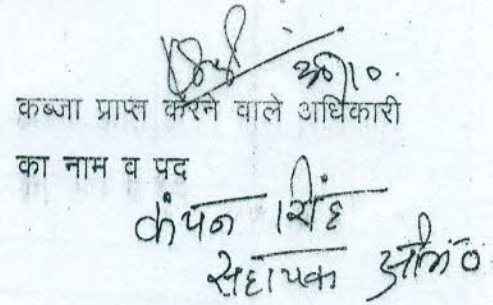 कब्जा प्राप्त करने वाले अधिकारी
का नाम व पद
कंचन सिंह
सहायक अभि०